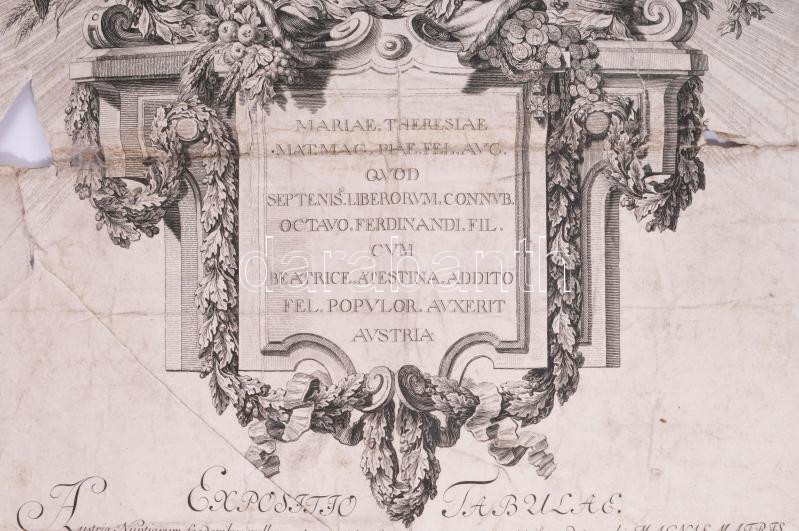 MARIAE. THERESIAE
.MAT. MAG. PIAE. FEL. AVC.
QVOD
SEPTENIS. LIBERORVM. CONNVB.
OCTAVO. FERDINANDI. FIL.
CVM
BEATRICE. ATESTINA. ADDITO
FEL. POPVLOR. AVXERIT
AVSTRIA
darabanth
EXPOSITIO TABULAE.
MAGNAE MATRIS